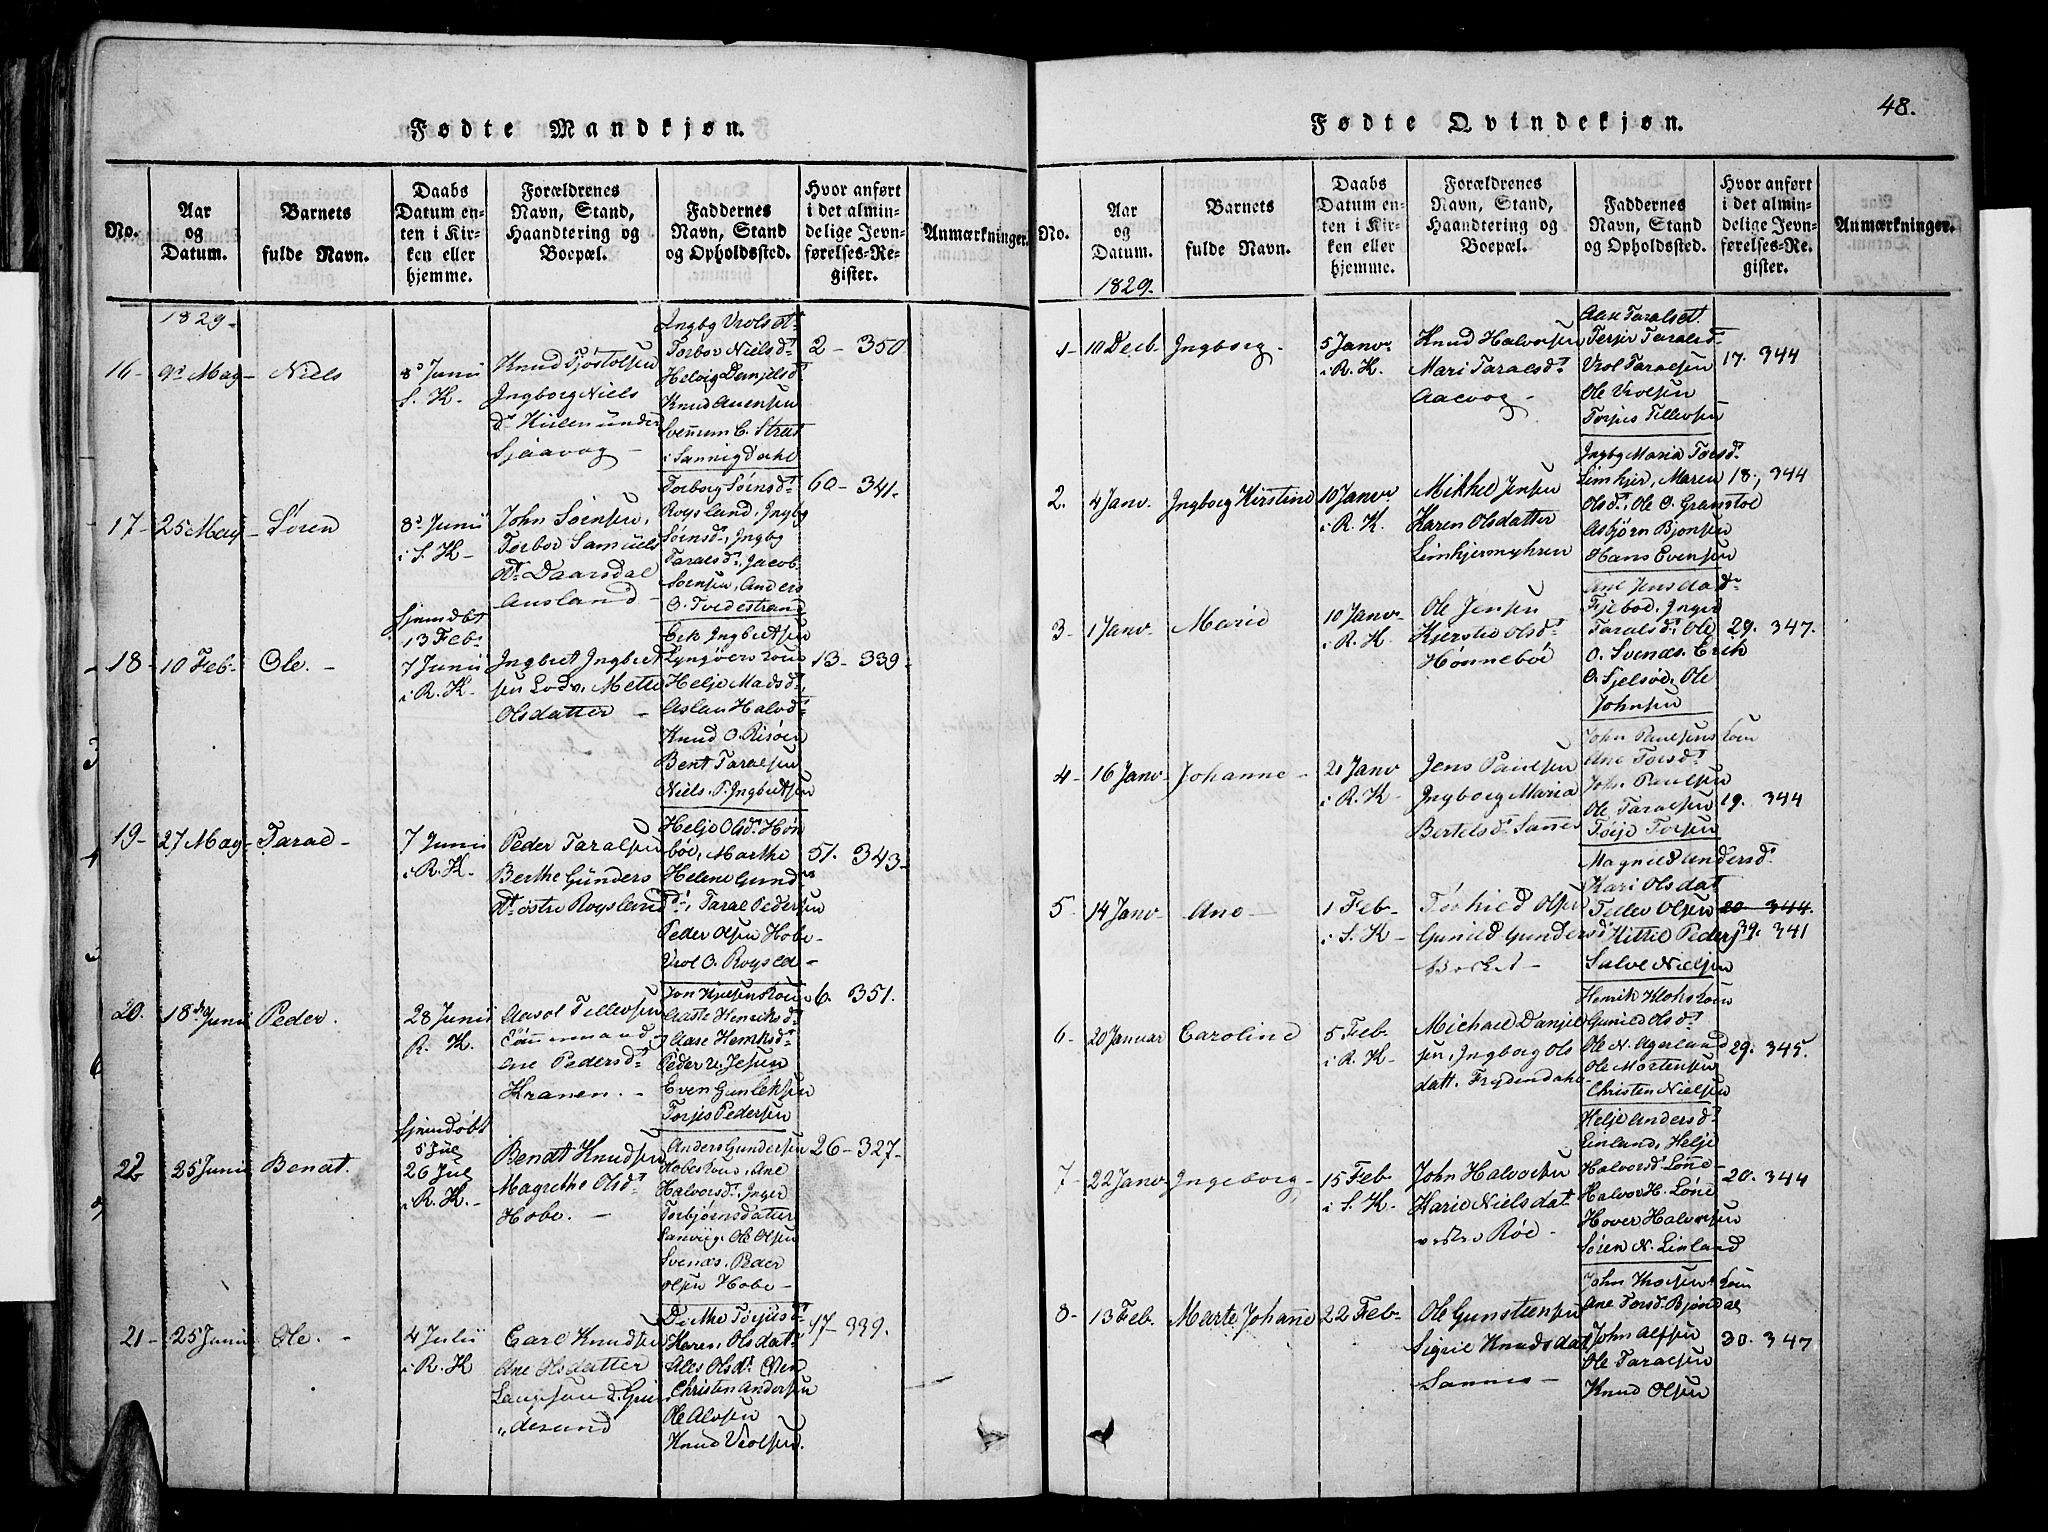 48.
Fødte Mandkjøn.
No.
Aar
og
Datum.
Barnets
fulde Navn.
Daabs
Datum en-
ten i Kir-
ken eller
hjemme.
Forældrenes
Navn, Stand,
Haandtering og
Boepæl.
Faddernes
Navn, Stand
og Opholdssted.
Hvor anført
i det almin-
delige Jevn-
førelses-Re-
gister.
Anmærkninger.
1829.
16 -
9d May -
Niels
8d Junii
S. K -
Knud Tjøstolsen
Ingborg Niels
dr Hülen under
Sjaavog -
Torbor Nielsdr
Helvig Danjelsdr
Knud Avensen
i Sannigdahl
2 - 350
17 -
25 May -
Søren
8d Junii
i S. K -
John Sörensen,
Torbor Samuels
dr Daarsdal
Ausland -
Torborg Sörnsdr
Roysland, Ingbg
Sörnsdr, Ingbg
Taralsdr, Jacob
Sörnsen, Anders
O. Tvedestrand
60 - 341.
18 -
10 Feb -
Ole. -
hjemdøbt
13 Feb.
7 Junii
i R. K -
Ingbret Ingbret
sen Lodv. Mette
Olsdatter -
Helje Madsdr
Aslau Halvdr
Knud O. Risöen
Bent Taralsen
Niels. P. Ingbretsen
13 - 339 -
19 -
27 May -
Taral -
7 Junii
i R. K -
Peder Taralsen
Berthe Gunders
dr østre Roysland
Helje Olsdr Høn
böe, Marthe
Helene Gund
dr, Taral Pedersen
Peder Olsen Hobe -
Vrol O. Roysld -
51. 343 -
20.
18de Junii
Peder.
28 Junii
R. K. -
Aasol Tellevsen
Tömmermand
Ane Pedersdr
Kranen. -
Aaste Henriksdr
Aase Henriksdr
Even Gunleksen
Torjus Pedersen
6. 351.
22
25 Junii
Benat.
hjemdøbt
5 Jul
26 Jul
i R. K. -
Benat Knudsen
Magrethe Olsdr
Hobe. -
Anders Gundersen
Hobe Lou, Ane
Halvorsdr, Inger
Torbjørnsdatter
Sanviig. Ole Olsen
Svenæs. Peder
Olsen Hobe -
26 - 327 -
21 -
25 Junii
Ole. -
4 Julii
i R. K
Carl Knudsen
Ane Olsdatter
Karen Olsdat
Ales Olsdr
Christen Andersen
Ole Alvsen
Knud Vrolsen.
17 - 339.
Fødte Qvindekjøn.
No.
Aar
og
Datum.
1829.
Barnets
fulde Navn.
Daabs
Datum en-
ten i Kir-
ken eller
hjemme.
Forældrenes
Navn, Stand,
Haandtering og
Boepæl.
Faddernes
Navn, Stand
og Opholdssted.
Hvor anført
i det almin-
delige Jevn-
førelses-Re-
gister.
Anmærkninger.
1 -
10 Decb.
Ingborg -
5 Janv.
i R. K.
Knud Halvorsen
Mari Taralsdr
Aavog -
Aase Taralsdt.
Terjer Taralsdr
Vrol Taralsen
Ole Vrolsen
Torjus Tellevsen
17. 344
2.
4 Janv.
Ingborg Kirstine
10 Janv.
i R. K.
Mikkel Jensen
Karen Olsdatter
Limhjermyhren
Ingbg Maria Torsdr
Limhjer, Maren
Olsdr, Ole O. Granstol
Asbjörn Bjonsen
Hans Evensen
18., 344
3 -
1 Janv.
Marie
10 Janv.
i R. K.
Ole Jensen
Kjerstie Olsdr
Hønnebøe
Ane Jensdatdr
Fjeboe, Inger
Taralsdr, Ole
O. Svenæs. Erik
O. Sjelsöe, Ole
Johnsen
29. 347.
4 -
16 Janv
Johanne -
21 Janv
i R. K
Jens Paulsen
Ingborg Maria
Bertelsdr Sannes
John Paulsens Lou
Ane Torsdr
Joh. Paulsen
Ole Taralsen
Toije Torsen
19. 344
5
14 Janv
Ane -
1 Feb -
i S. K -
Torkild Olsen
Gunild Gundersdr
Magnild Andersdr
Kari Olsdat
Tellev Olsen
Kittil Peders
Salve Nielsen
20 344.
39. 341
6 -
20 Januar
Caroline
5 Feb -
i R. K.
Michael Danjel
sen, Ingborg Ols
datt. Frydendahl
Gunild Olsdr
Ole N. Agerland
Ole Mortensen
Christen Nielsen
29. 345.
7 -
22 Janv
Ingeborg -
15 Feb
i S. K.
John Halvorsen
Karie Nielsdat
vestre Röe -
Helje Andersdr
Linland, Helje
Halvorsdr Lönne -
Halvor H. Lönne
Hover Halvorsen
Sören N. Linland
20. 344
8 -
13 Feb.
Marte Johanne
22 Feb -
Ole Gunstensen
Sigrie Knudsdat
Sannes -
Ane Torsdr Bjöndal
John Alfsen
Ole Taralsen
Knud Olsen
30. 347